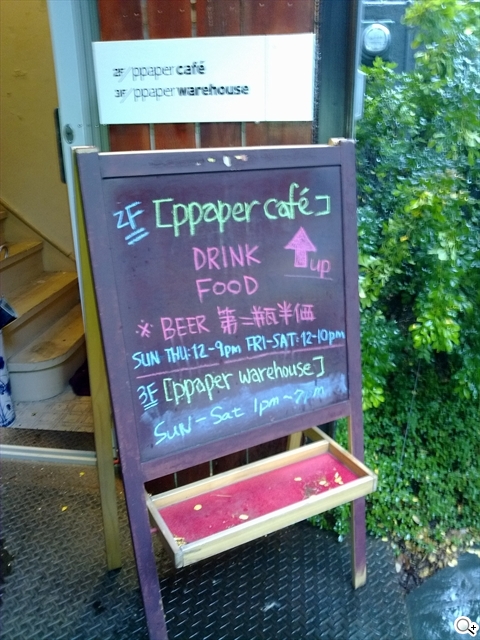 2F/ppaper café
3F/ppaper warehouse
2F [ppaper café]
DRINK
FOOD
up
※ BEER 第二瓶半価
SUN THU: 12-9pm FRI-SAT: 12-10pm
3F [ppaper warehouse]
SuN-Sat 1pm~